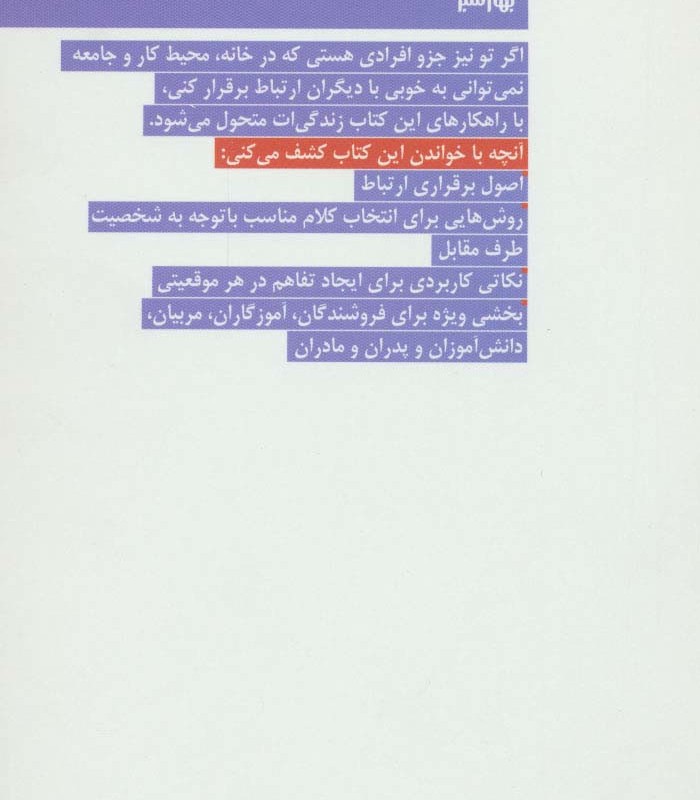 اگر تو نیز جزو افرادی هستی که در خانه، محیط کار و جامعه
نمی‌توانی به خوبی با دیگران ارتباط برقرار کنی،
با راهکارهای این کتاب زندگی‌ات متحول می‌شود.
آنچه با خواندن این کتاب کشف می‌کنی:
اصول برقراری ارتباط
روش‌هایی برای انتخاب کلام مناسب باتوجه به شخصیت
طرف مقابل
نکاتی کاربردی برای ایجاد تفاهم در هر موقعیتی
بخشی ویژه برای فروشندگان، آموزگاران، مربیان،
دانش‌آموزان و پدران و مادران